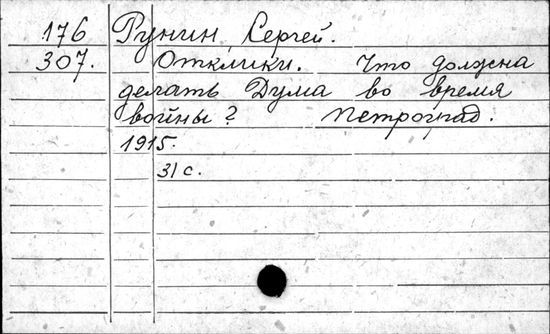 176 Рунин, Сергей.
307. Отклики. Что должна
делать Дума во время
войны? Петроград.
1915.
31 с.